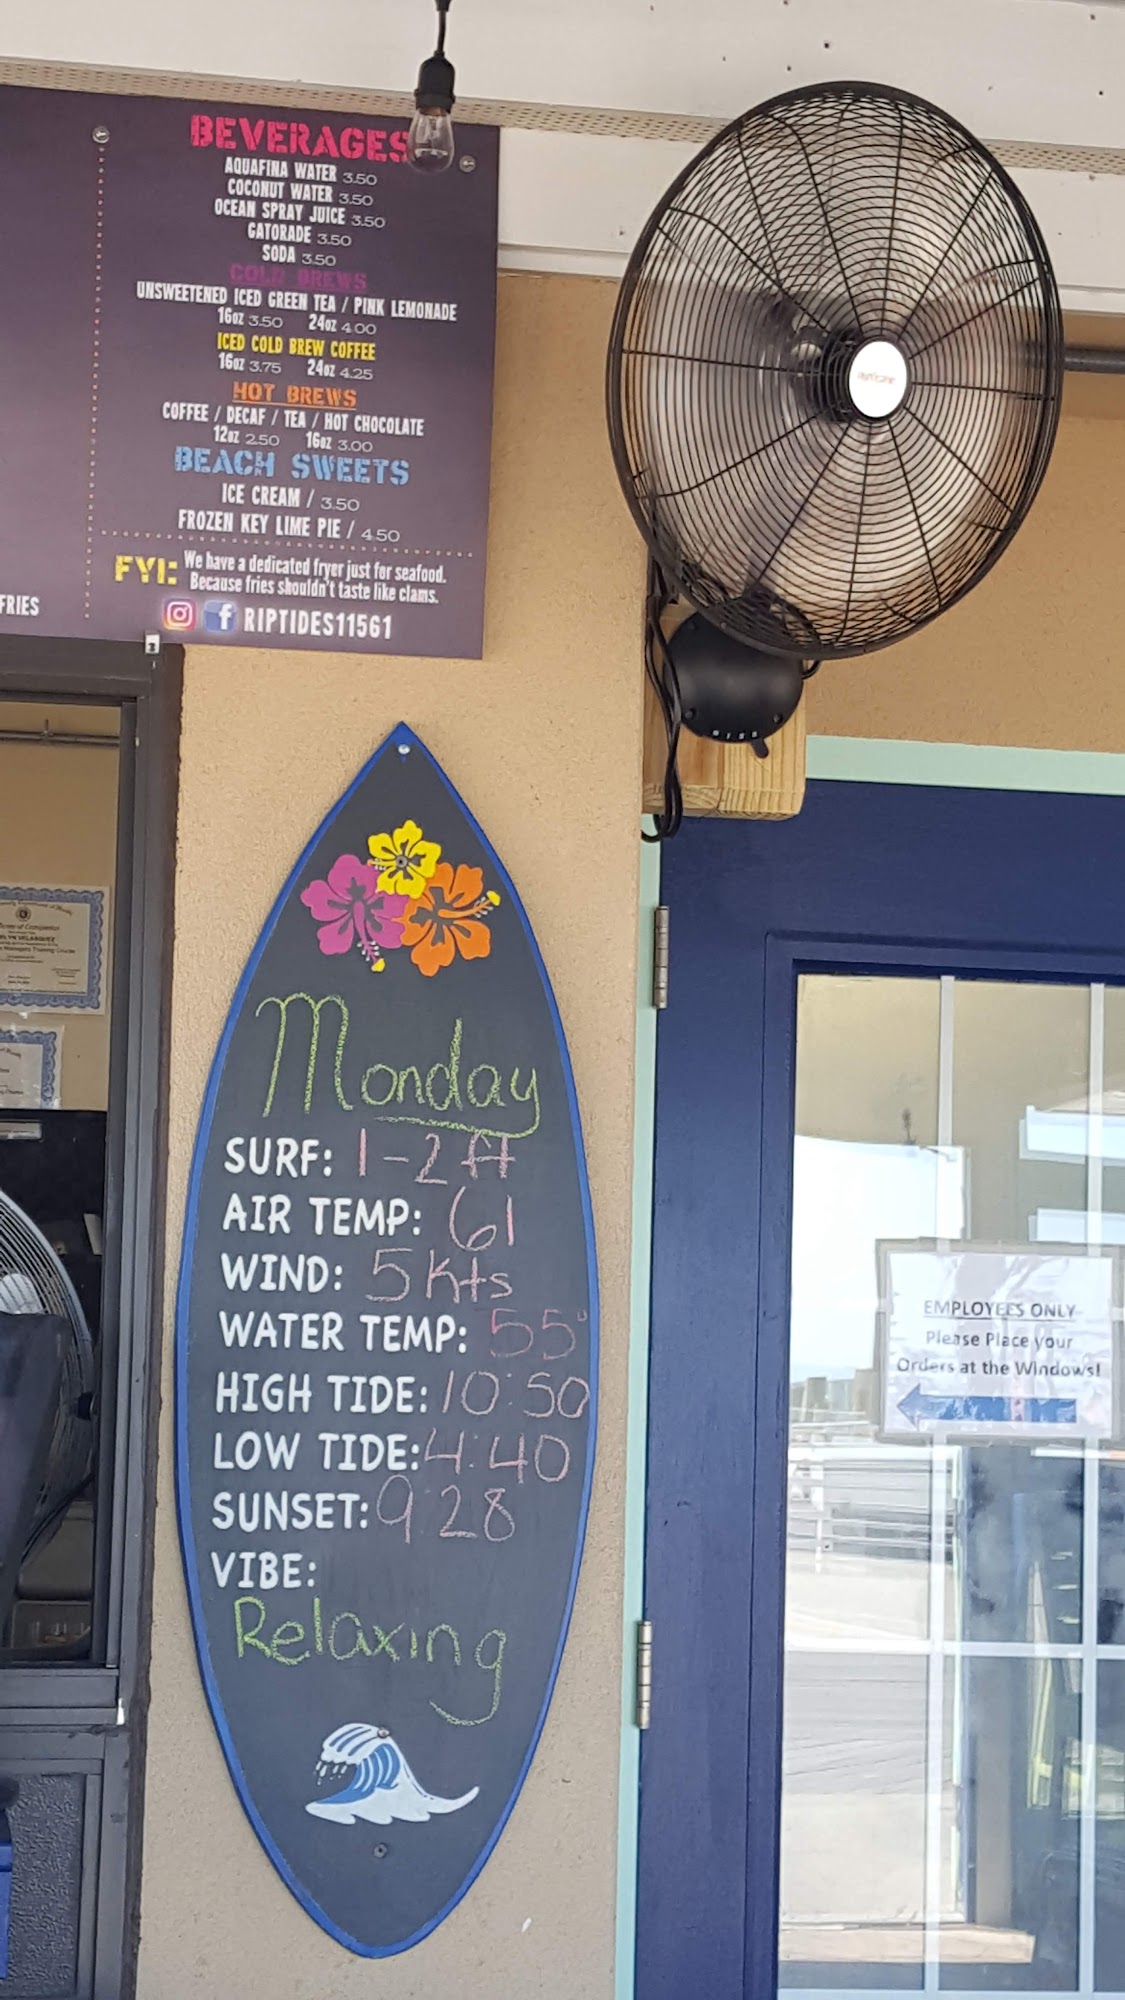 BEVERAGES
AQUAFINA WATER 3.50
COCONUT WATER 3.50
OCEAN SPRAY JUICE 3.50
GATORADE 3.50
SODA 3.50
COLD BREWS
UNSWEETENED ICED GREEN TEA / PINK LEMONADE
16oz 3.50 24oz 4.00
ICED COLD BREW COFFEE
16oz 3.75 24oz 4.25
HOT BREWS
COFFEE / DECAF / TEA / HOT CHOCOLATE
12oz 2.50 16oz 3.00
BEACH SWEETS
ICE CREAM / 3.50
FROZEN KEY LIME PIE / 4.50
FYI: We have a dedicated fryer just for seafood.
Because fries shouldn't taste like clams.
f RIPTIDES11561
FRIES
Monday
SURF: 1-2 ft
AIR TEMP: 61
WIND: 5 kts
WATER TEMP: 55°
HIGH TIDE: 10:50
LOW TIDE: 4:40
SUNSET: 9:28
VIBE:
Relaxing
EMPLOYEES ONLY
Please Place your
Orders at the Windows!